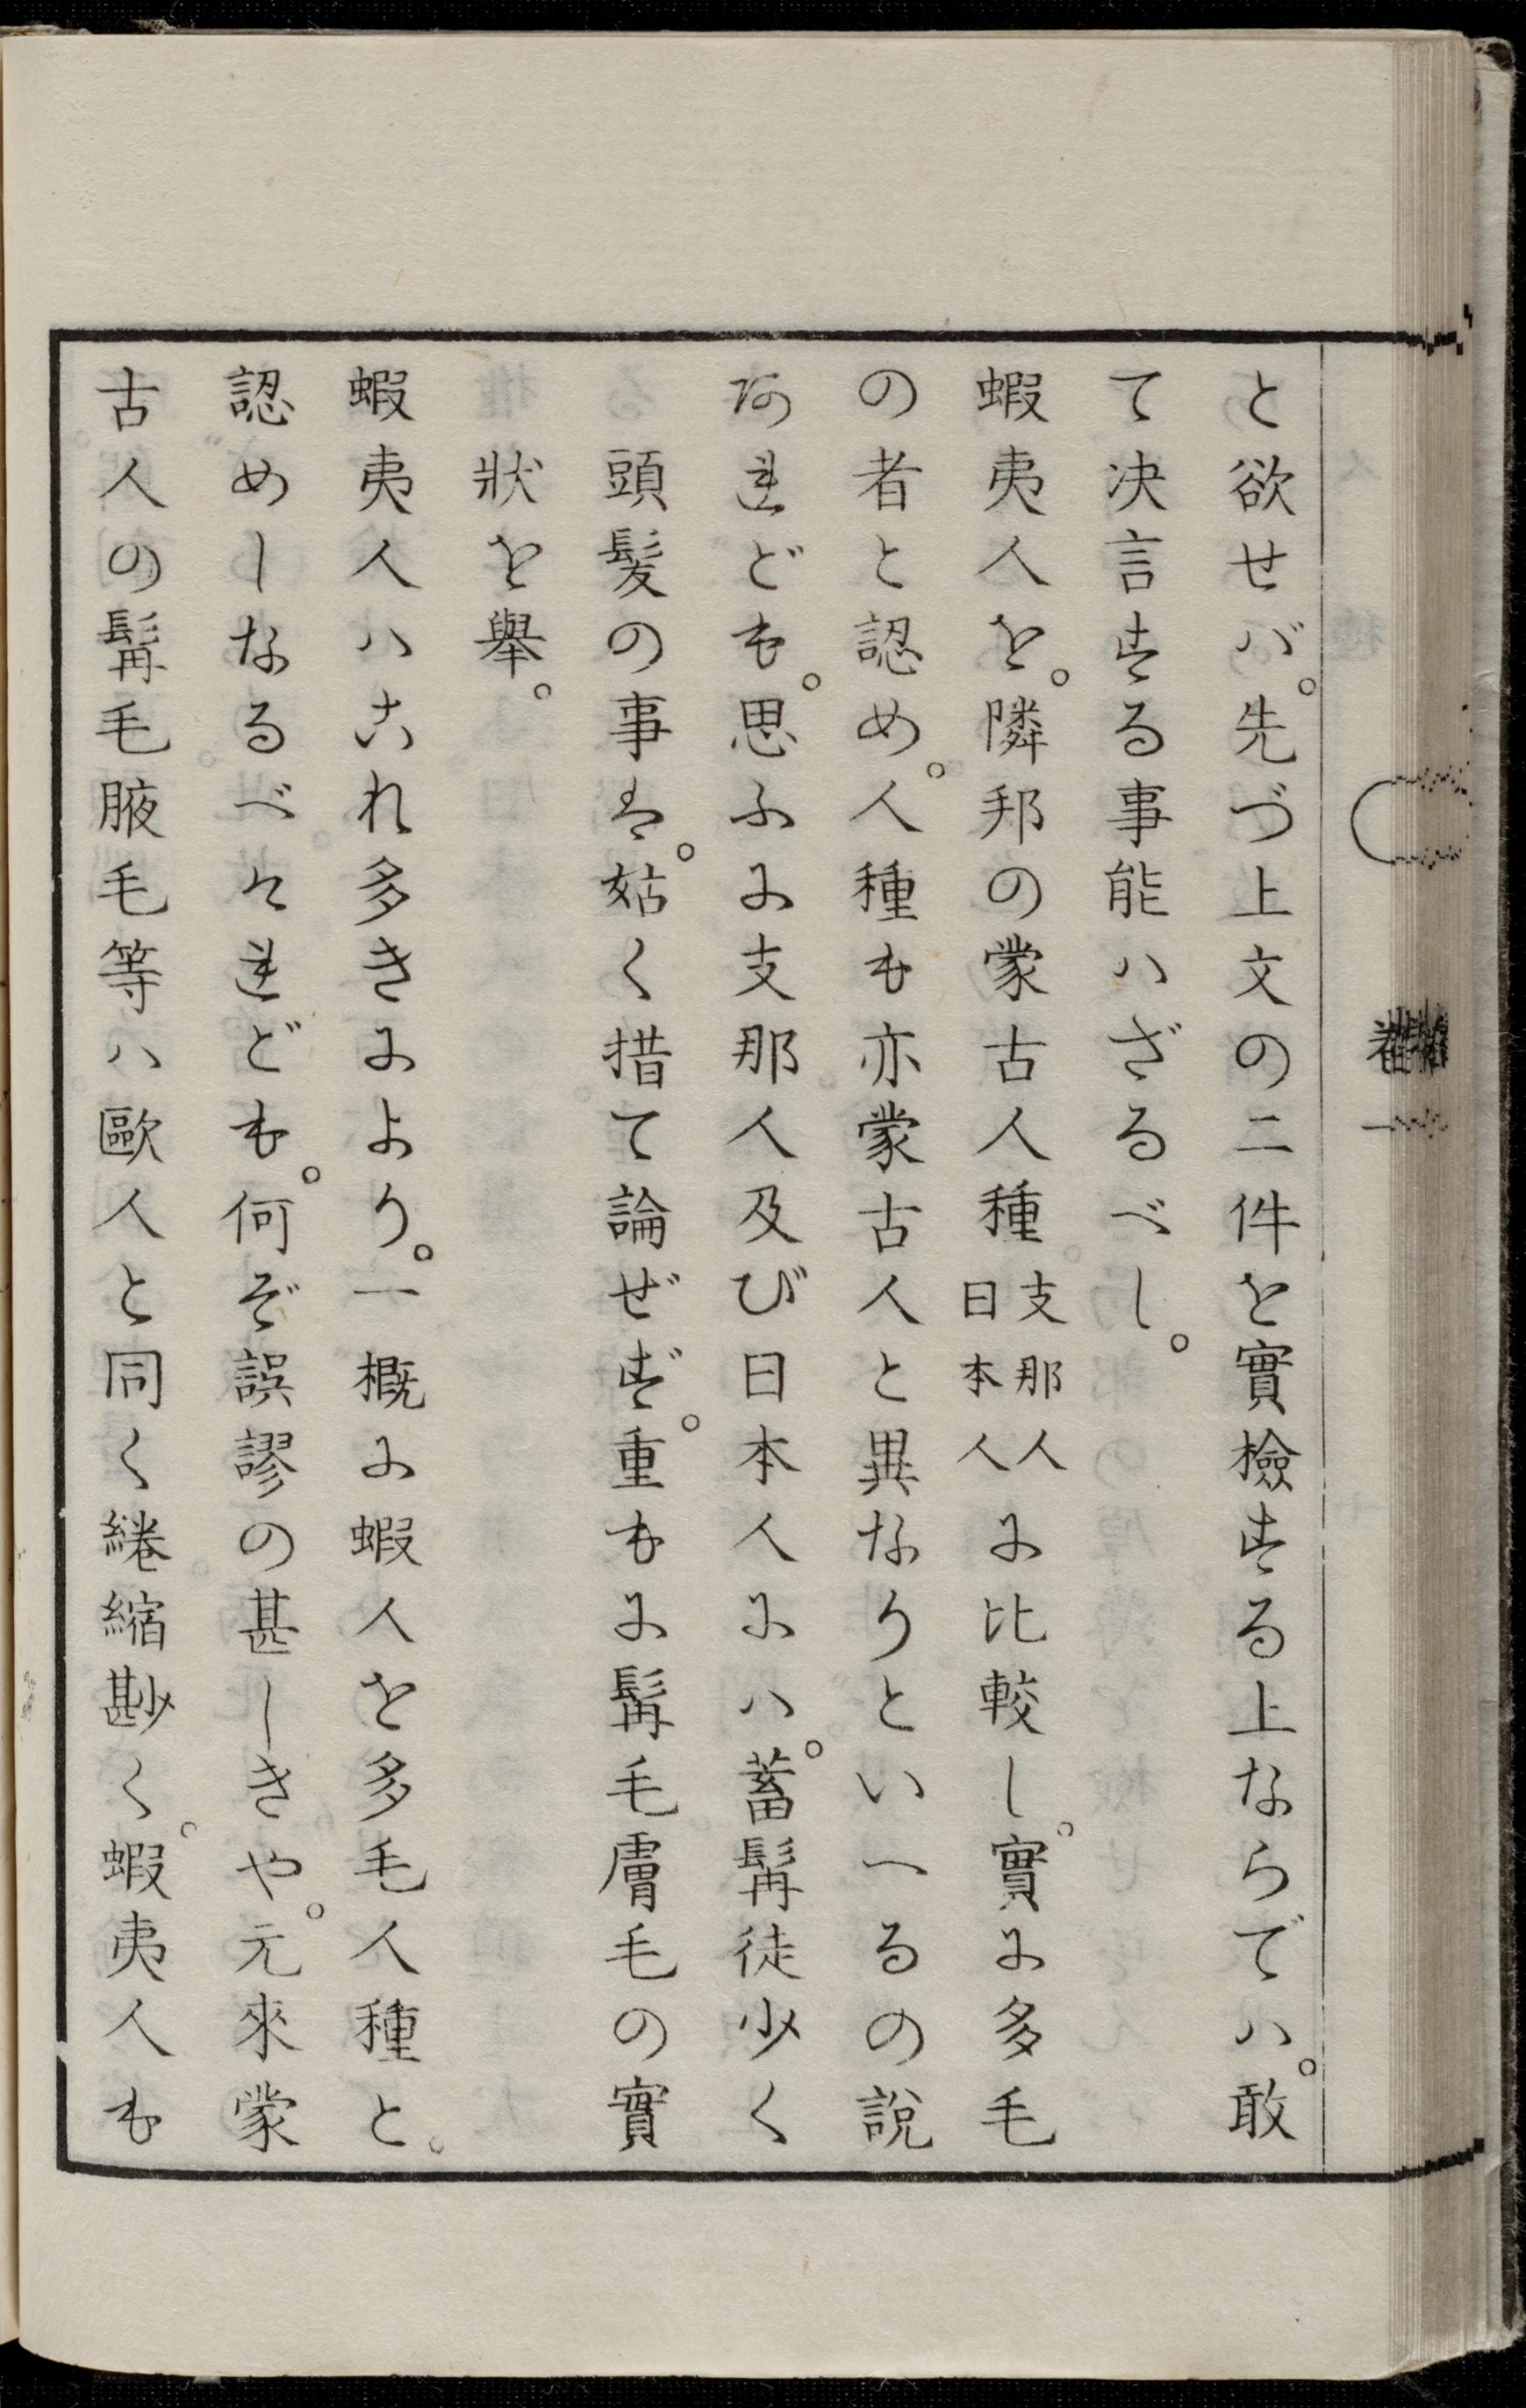 と欲せバ。先づ上文の二件を實檢する上ならでハ。敢
て决言する事能ハざるべし。
蝦夷人を。隣邦の蒙古人種支那人日本人に比較し。實に多毛
の者と認め。人種も亦蒙古人と異なりといへるの說
あれども。思ふに支那人及び日本人にハ。蓄髯徒少く
頭髪の事は。姑く措て論ぜず。重もに髯毛膚毛の實
狀を舉。
蝦夷人ハこれ多きにより。一概に蝦人を多毛人種と。
認めしなるべけれども。何ぞ誤謬の甚しきや。元來蒙
古人の髯毛腋毛等ハ歐人と同く綣縮尠く。蝦夷人も
卷一